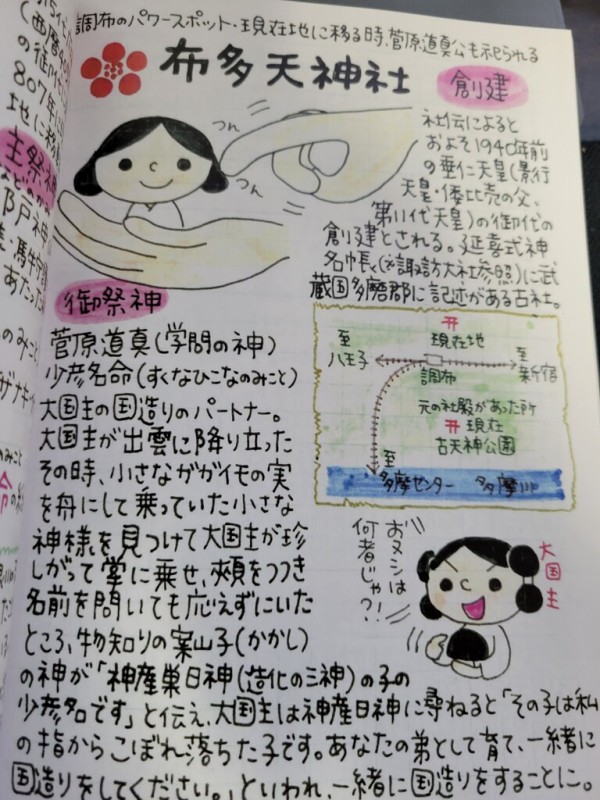 調布のパワースポット・現在地に移る時、菅原道真公も祀られる
布多天神社
創建
社伝によると
およそ1940年前
の垂仁天皇(景行
天皇・倭比売の父、
第11代天皇)の御代の
創建とされる。延喜式神
名帳(※諏訪大社参照)に武
蔵国多磨郡に記述がある古社。
つん
つん
御祭神
菅原道真(学問の神)
少彦名命(すくなひこなのみこと)
大国主の国造りのパートナー。
大国主が出雲に降り立った
その時、小さなガガイモの実
を舟にして乗っていた小さな
神様を見つけて大国主が珍
しがって掌に乗せ、頬をつつき
名前を問いても応えずにいた
ところ、物知りの案山子(かかし)
の神が「神産巣日神(造化の三神)の子の
少彦名です」と伝え、大国主は神産日神に尋ねると「その子は私
の指からこぼれ落ちた子です。あなたの弟として育て、一緒に
国造りをしてください。」といわれ、一緒に国造りをすることに。
現在地
至
八王子
至
新宿
調布
元の社殿があった所
現在
古天神公園
至
多摩センター
多摩川
おヌシは
何者じゃ?!
大国主
807年に
地に移
主祭神